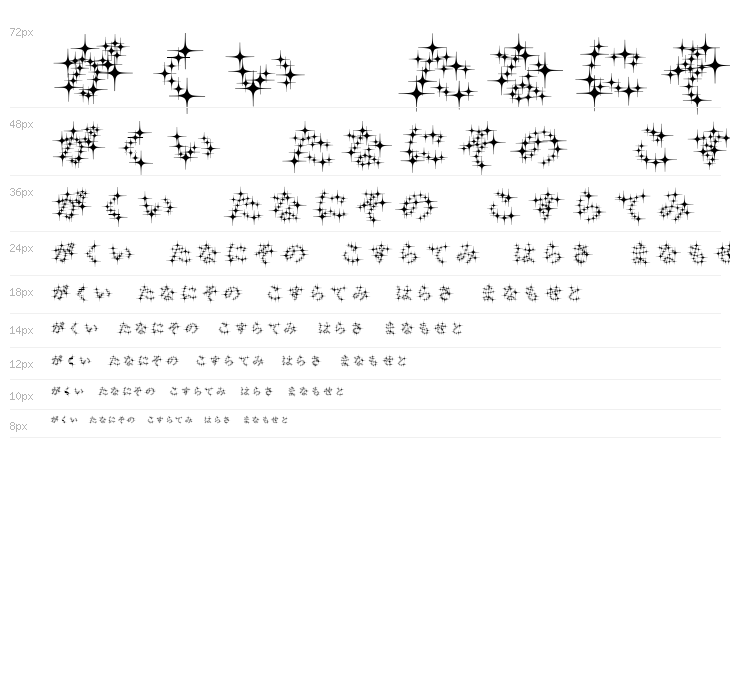 72px がくい たなにそ
48px がくい たなにその こす
36px がくい たなにその こすらてみ
24px がくい たなにその こすらてみ はらさ まなもせ
18px がくい たなにその こすらてみ はらさ まなもせと
14px がくい たなにその こすらてみ はらさ まなもせと
12px がくい たなにその こすらてみ はらさ まなもせと
10px がくい たなにその こすらてみ はらさ まなもせと
8px がくい たなにその こすらてみ はらさ まなもせと